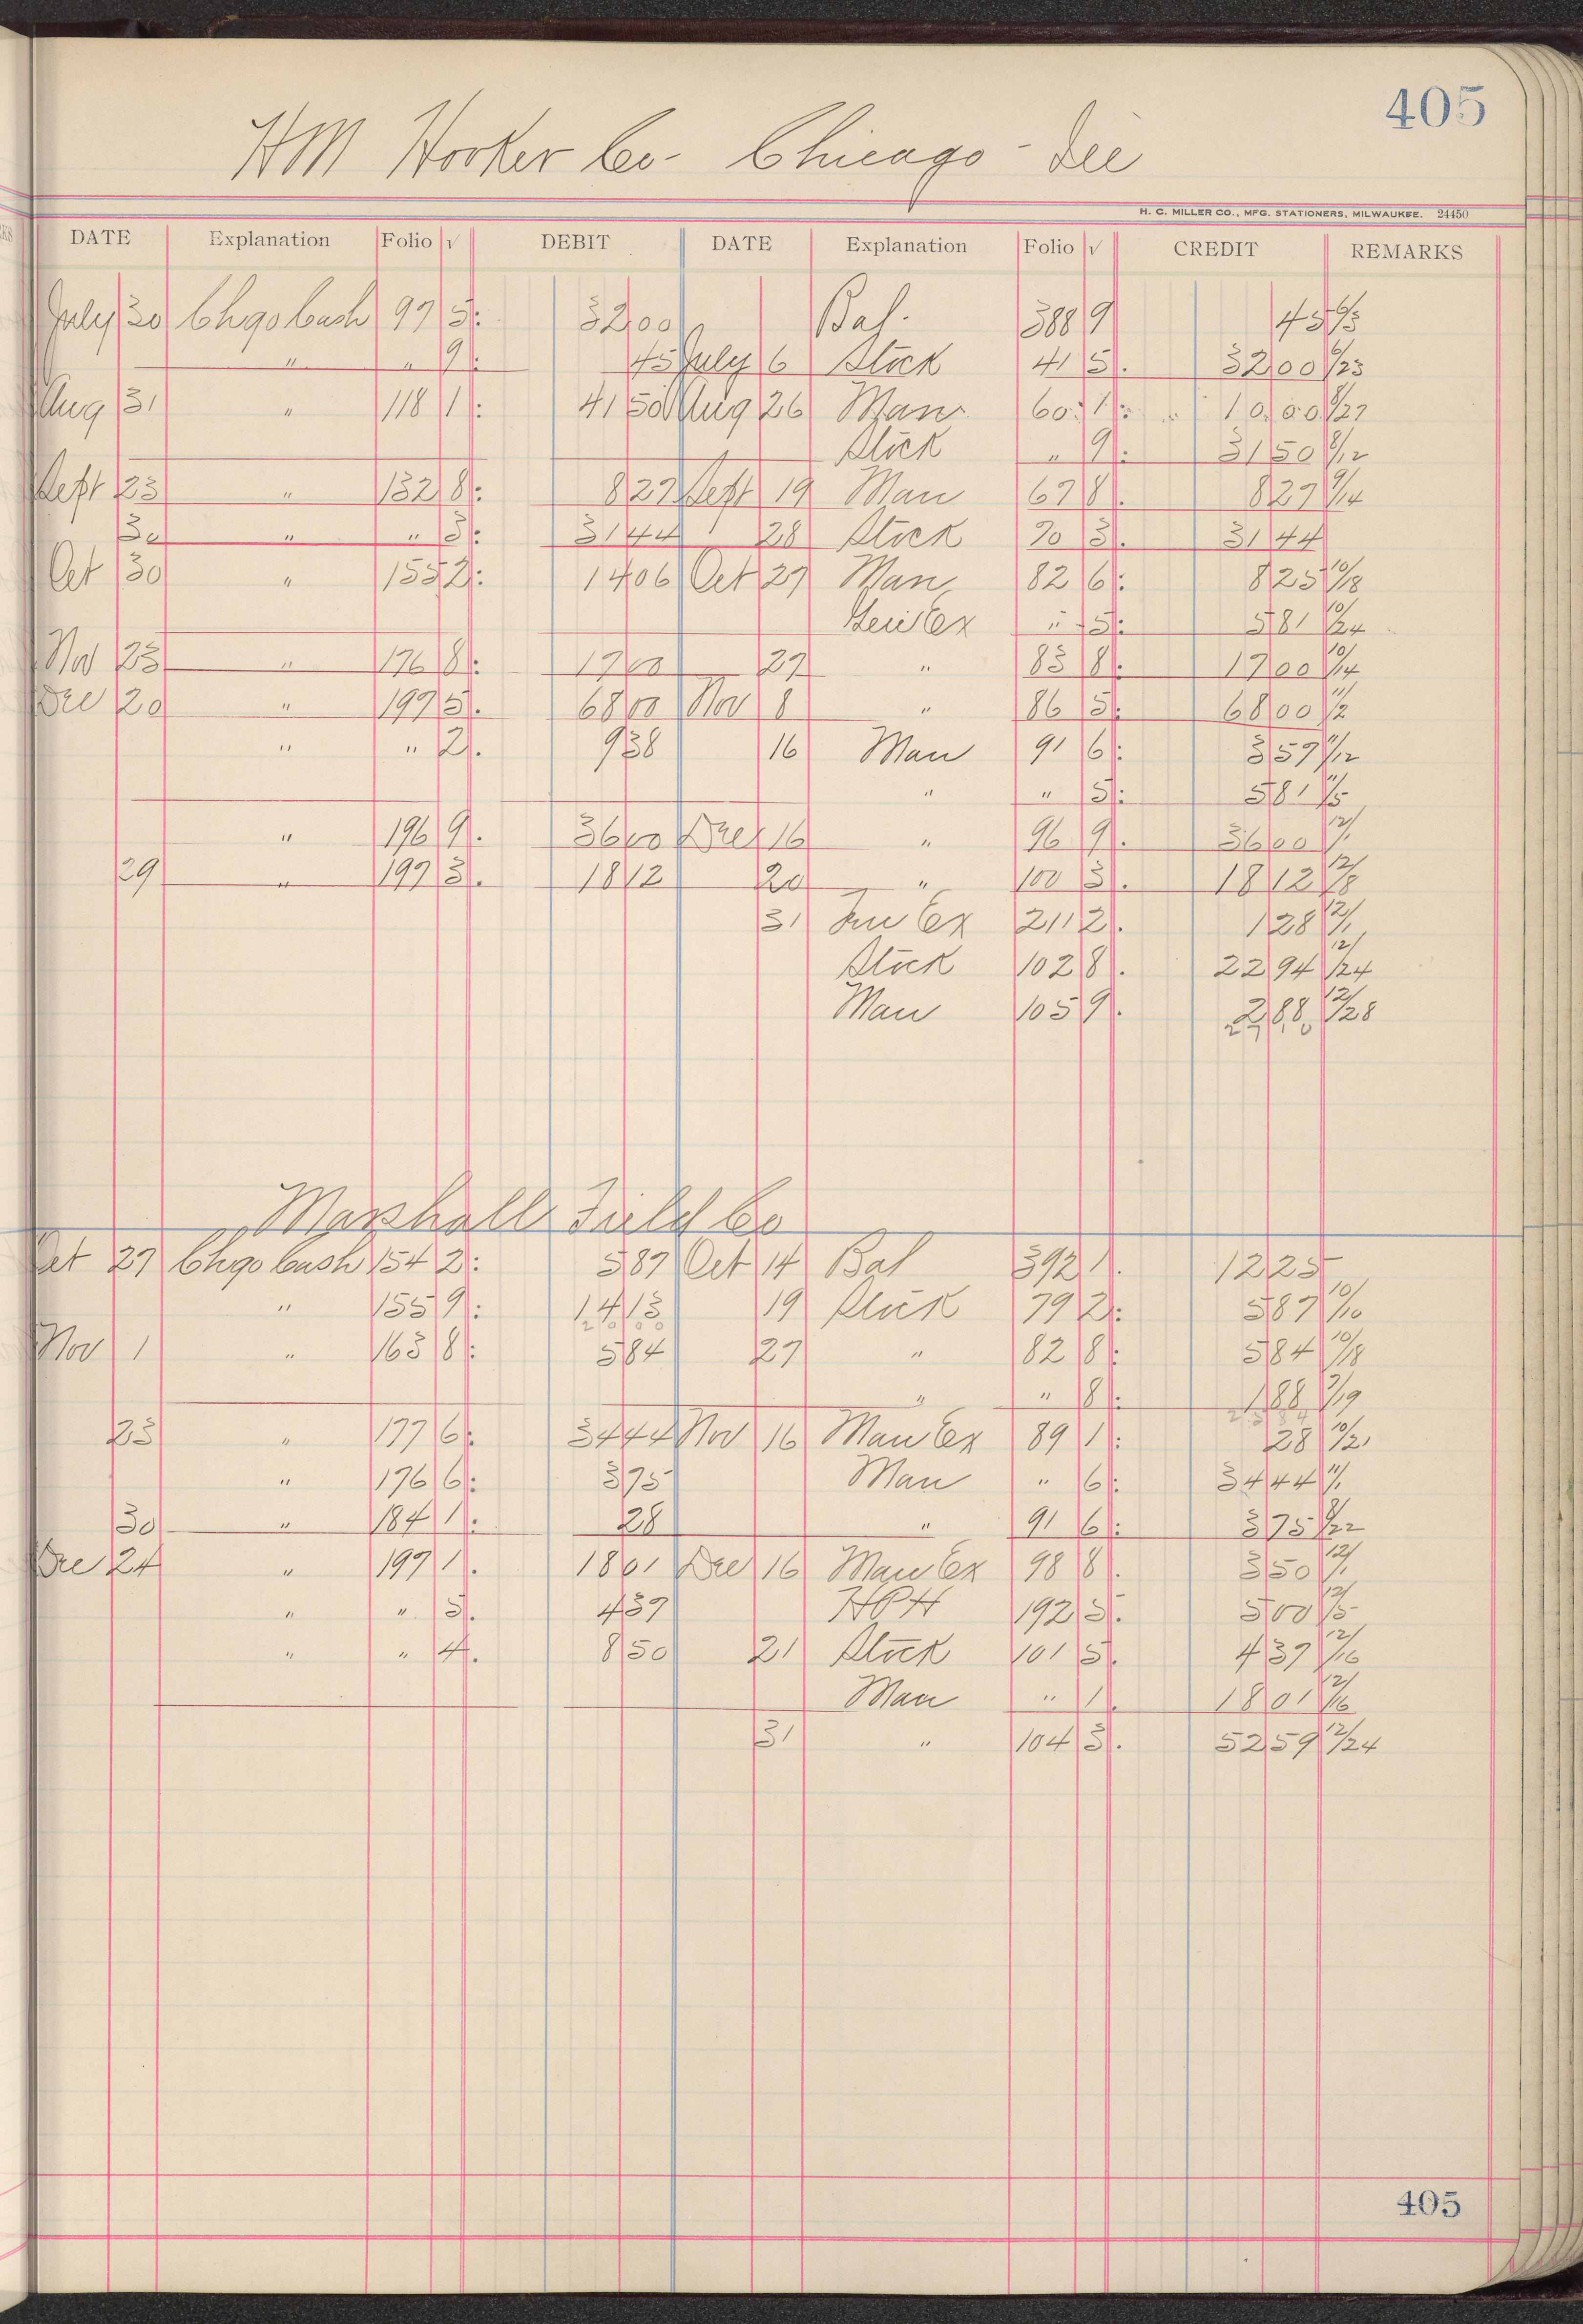 405
HM Hooker Co- Chicago - Ill
H. C. MILLER CO., MFG. STATIONERS, MILWAUKEE. 24450
DATE Explanation Folio √ DEBIT DATE Explanation Folio √ CREDIT REMARKS
July 30 Chgo Cash 97 5: 3200 Bal. 388 9 45 6/3
" " 9: 45 July 6 Stock 41 5. 3200 6/23
Aug 31 " 118 1: 4150 Aug 26 Man 60 1: 1000 8/27
Stock " 9: 3150 8/12
Sept 23 " 132 8: 827 Sept 19 Man 67 8. 827 9/14
30 " " 3: 3144 28 Stock 70 3. 3144
Oct 30 " 155 2: 1406 Oct 27 Man 82 6: 825 10/18
Genl Ex " 5: 581 10/24
Nov 23 " 176 8: 1700 27 " 83 8: 1700 10/14
Dec 20 " 197 5. 6800 Nov 8 " 86 5: 6800 11/2
" " 2. 938 16 Man 91 6: 357 11/12
" " 5: 581 11/5
" 196 9. 3600 Dec 16 " 96 9. 3600 12/1
29 " 197 3. 1812 20 " 100 3. 1812 12/8
31 Ex 211 2. 128 12/1
Stock 102 8. 2294 12/24
Man 105 9. 288 12/28
2710
Marshall Field Co
Oct 27 Chgo Cash 154 2: 587 Oct 14 Bal 392 1. 1225
" 155 9: 1413 19 Stock 79 2: 587 10/10
2000
Nov 1 " 163 8: 584 27 " 82 8: 584 10/18
" " 8: 188 9/19
2584
23 " 177 6: 3444 Nov 16 Man Ex 89 1: 28 10/21
" 176 6: 375 Man " 6: 3444 11/1
30 " 184 1: 28 " 91 6: 375 8/22
Dec 24 " 197 1. 1801 Dec 16 Man Ex 98 8. 350 12/1
" " 5. 437 HPH 192 5. 500 12/5
" " 4. 850 21 Stock 101 5. 437 12/16
Man " 1. 1801 12/16
31 " 104 3. 5259 12/24
405